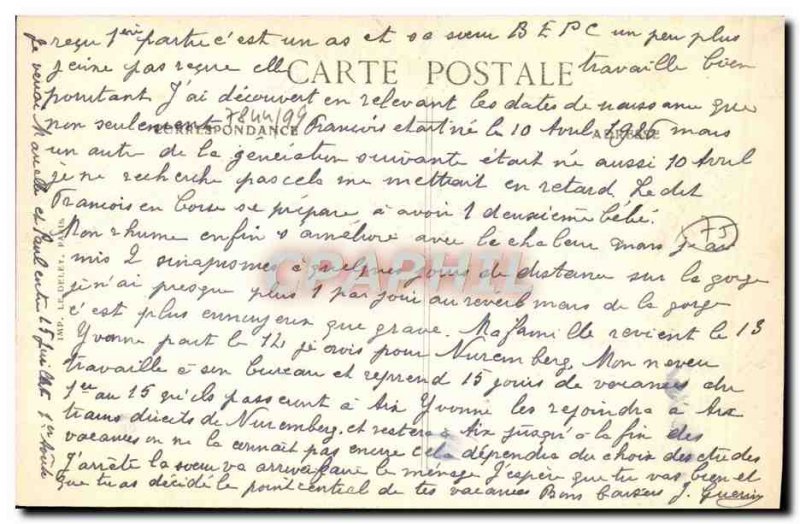 reçu 1ère partie c'est un as et sa soeur B E P C un peu plus
jeune pas reçue elle CARTE POSTALE travaille bien
pourtant J'ai découvert en relevant les dates de naissance que
7844/99
non seulement François était né le 10 Avril 1926 mais
CORRESPONDANCE ADRESSE
un autre de la génération suivante était né aussi 10 Avril
je ne recherche pas cela me mettrait en retard. Le dit
François en bourse se prépare à avoir 1 deuxième bébé.
75
Mon rhume enfin s'améliore avec la chaleur mais j'ai
mis 2 sinapismes à quelques jours de distance sur la gorge
je n'ai presque plus 1 par jour au réveil mais de la gorge
c'est plus ennuyeux que grave. Ma famille revient le 13
Yvonne part le 14 je crois pour Nuremberg. Mon neveu
travaille à son bureau et reprend 15 jours de vacances du
1er au 15 qu'ils passeront à Aix Yvonne les rejoindra à Aix
trains directs de Nuremberg et restera à Aix jusqu'à la fin des
vacances on ne la connaît pas encore cela dépendra du choix des études
J'arrête la soeur va arriver faire le ménage J'espère que tu vas bien et
que tu as décidé le point central de tes vacances Bons baisers J. Guerin
je verrai Marcelle et Paul entre 25 Juillet 1er Août
IMP. LE DELEY, PARIS
CPAPHIL